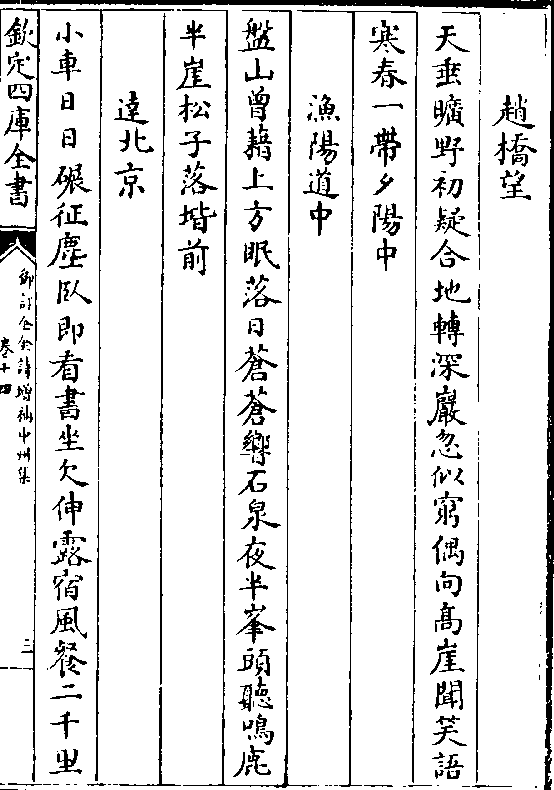 趙橋望
天垂曠野初疑合地轉深巖忽似窮偶向高崖聞笑語
寒春一帶夕陽中
漁陽道中
盤山曾藉上方眠落日蒼蒼響石泉夜半峯頭聽鳴鹿
半崖松子落堦前
達北京
小車日日碾征塵臥即看書坐欠伸露宿風餐二千里
欽定四庫全書
御訂全金詩增補中州集
卷十四
三